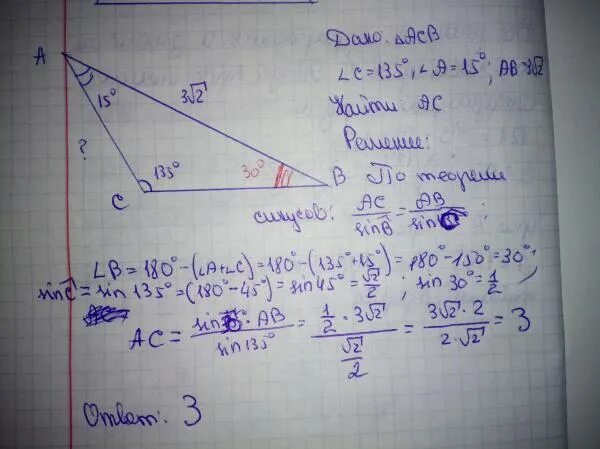 Дано: △ACB
∠C=135°, ∠A=15°; AB 3√2
Найти: AC
Решение:
A
15°
3√2
?
135°
30°
C
B
По теореме
синусов: AC/sinB = AB/sin
∠B = 180° - (∠A+∠C) = 180° - (135°+15°) = 180° - 150° = 30°
sinC = sin 135° = (180° - 45°) = sin 45° = √2/2 ; sin 30° = 1/2
AC = sin · AB / sin 135° = (1/2 · 3√2) / (√2/2) = 3√2 · 2 / 2 · √2 = 3
Ответ: 3